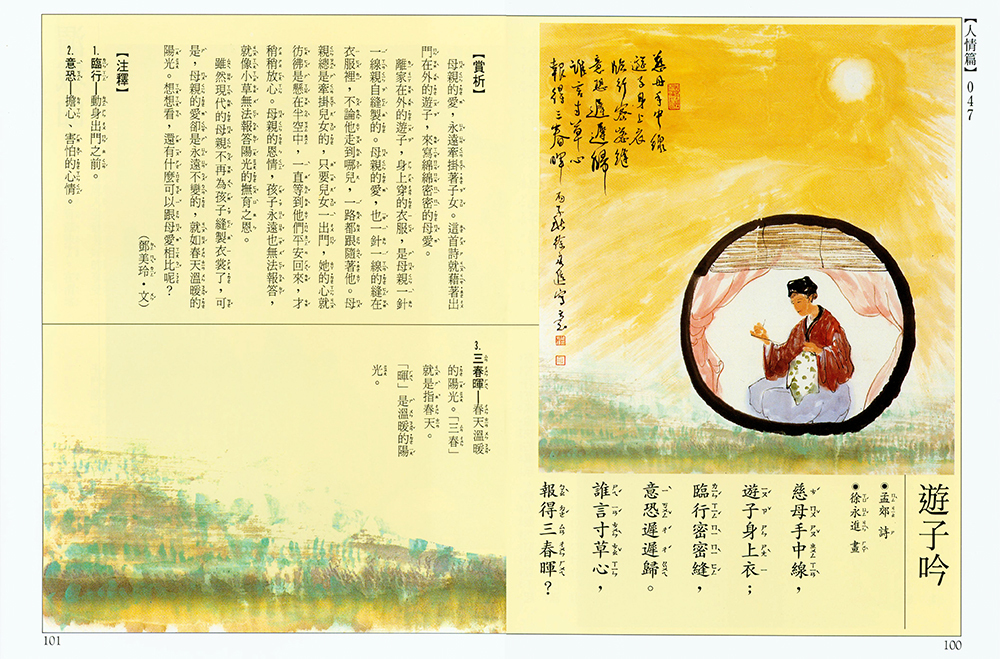 【人情篇】047
遊子吟
●孟郊 詩
●徐永進 畫
慈母手中線，
遊子身上衣；
臨行密密縫，
意恐遲遲歸。
誰言寸草心，
報得三春暉？
慈母手中線
遊子身上衣
臨行密密縫
意恐遲遲歸
誰言寸草心
報得三春暉
100
【賞析】
母親的愛，永遠牽掛著子女。這首詩就藉著出
門在外的遊子，來寫綿綿密密的母愛。
離家在外的遊子，身上穿的衣服，是母親一針
一線親自縫製的。母親的愛，也一針一線的縫在
衣服裡，不論他走到哪兒，一路都跟隨著他。母
親總是牽掛兒女的，只要兒女一出門，她的心就
彷彿是懸在半空中，一直等到他們平安回來，才
稍稍放心。母親的恩情，孩子永遠也無法報答，
就像小草無法報答陽光的撫育之恩。
雖然現代的母親不再為孩子縫製衣裳了，可
是，母親的愛卻是永遠不變的，就如春天溫暖的
陽光。想想看，還有什麼可以跟母愛相比呢？
（鄭美玲・文）
【注釋】
1.臨行—動身出門之前。
2.意恐—擔心、害怕的心情。
3.三春暉—春天溫暖
的陽光。「三春」
就是指春天。
「暉」是溫暖的陽
光。
101